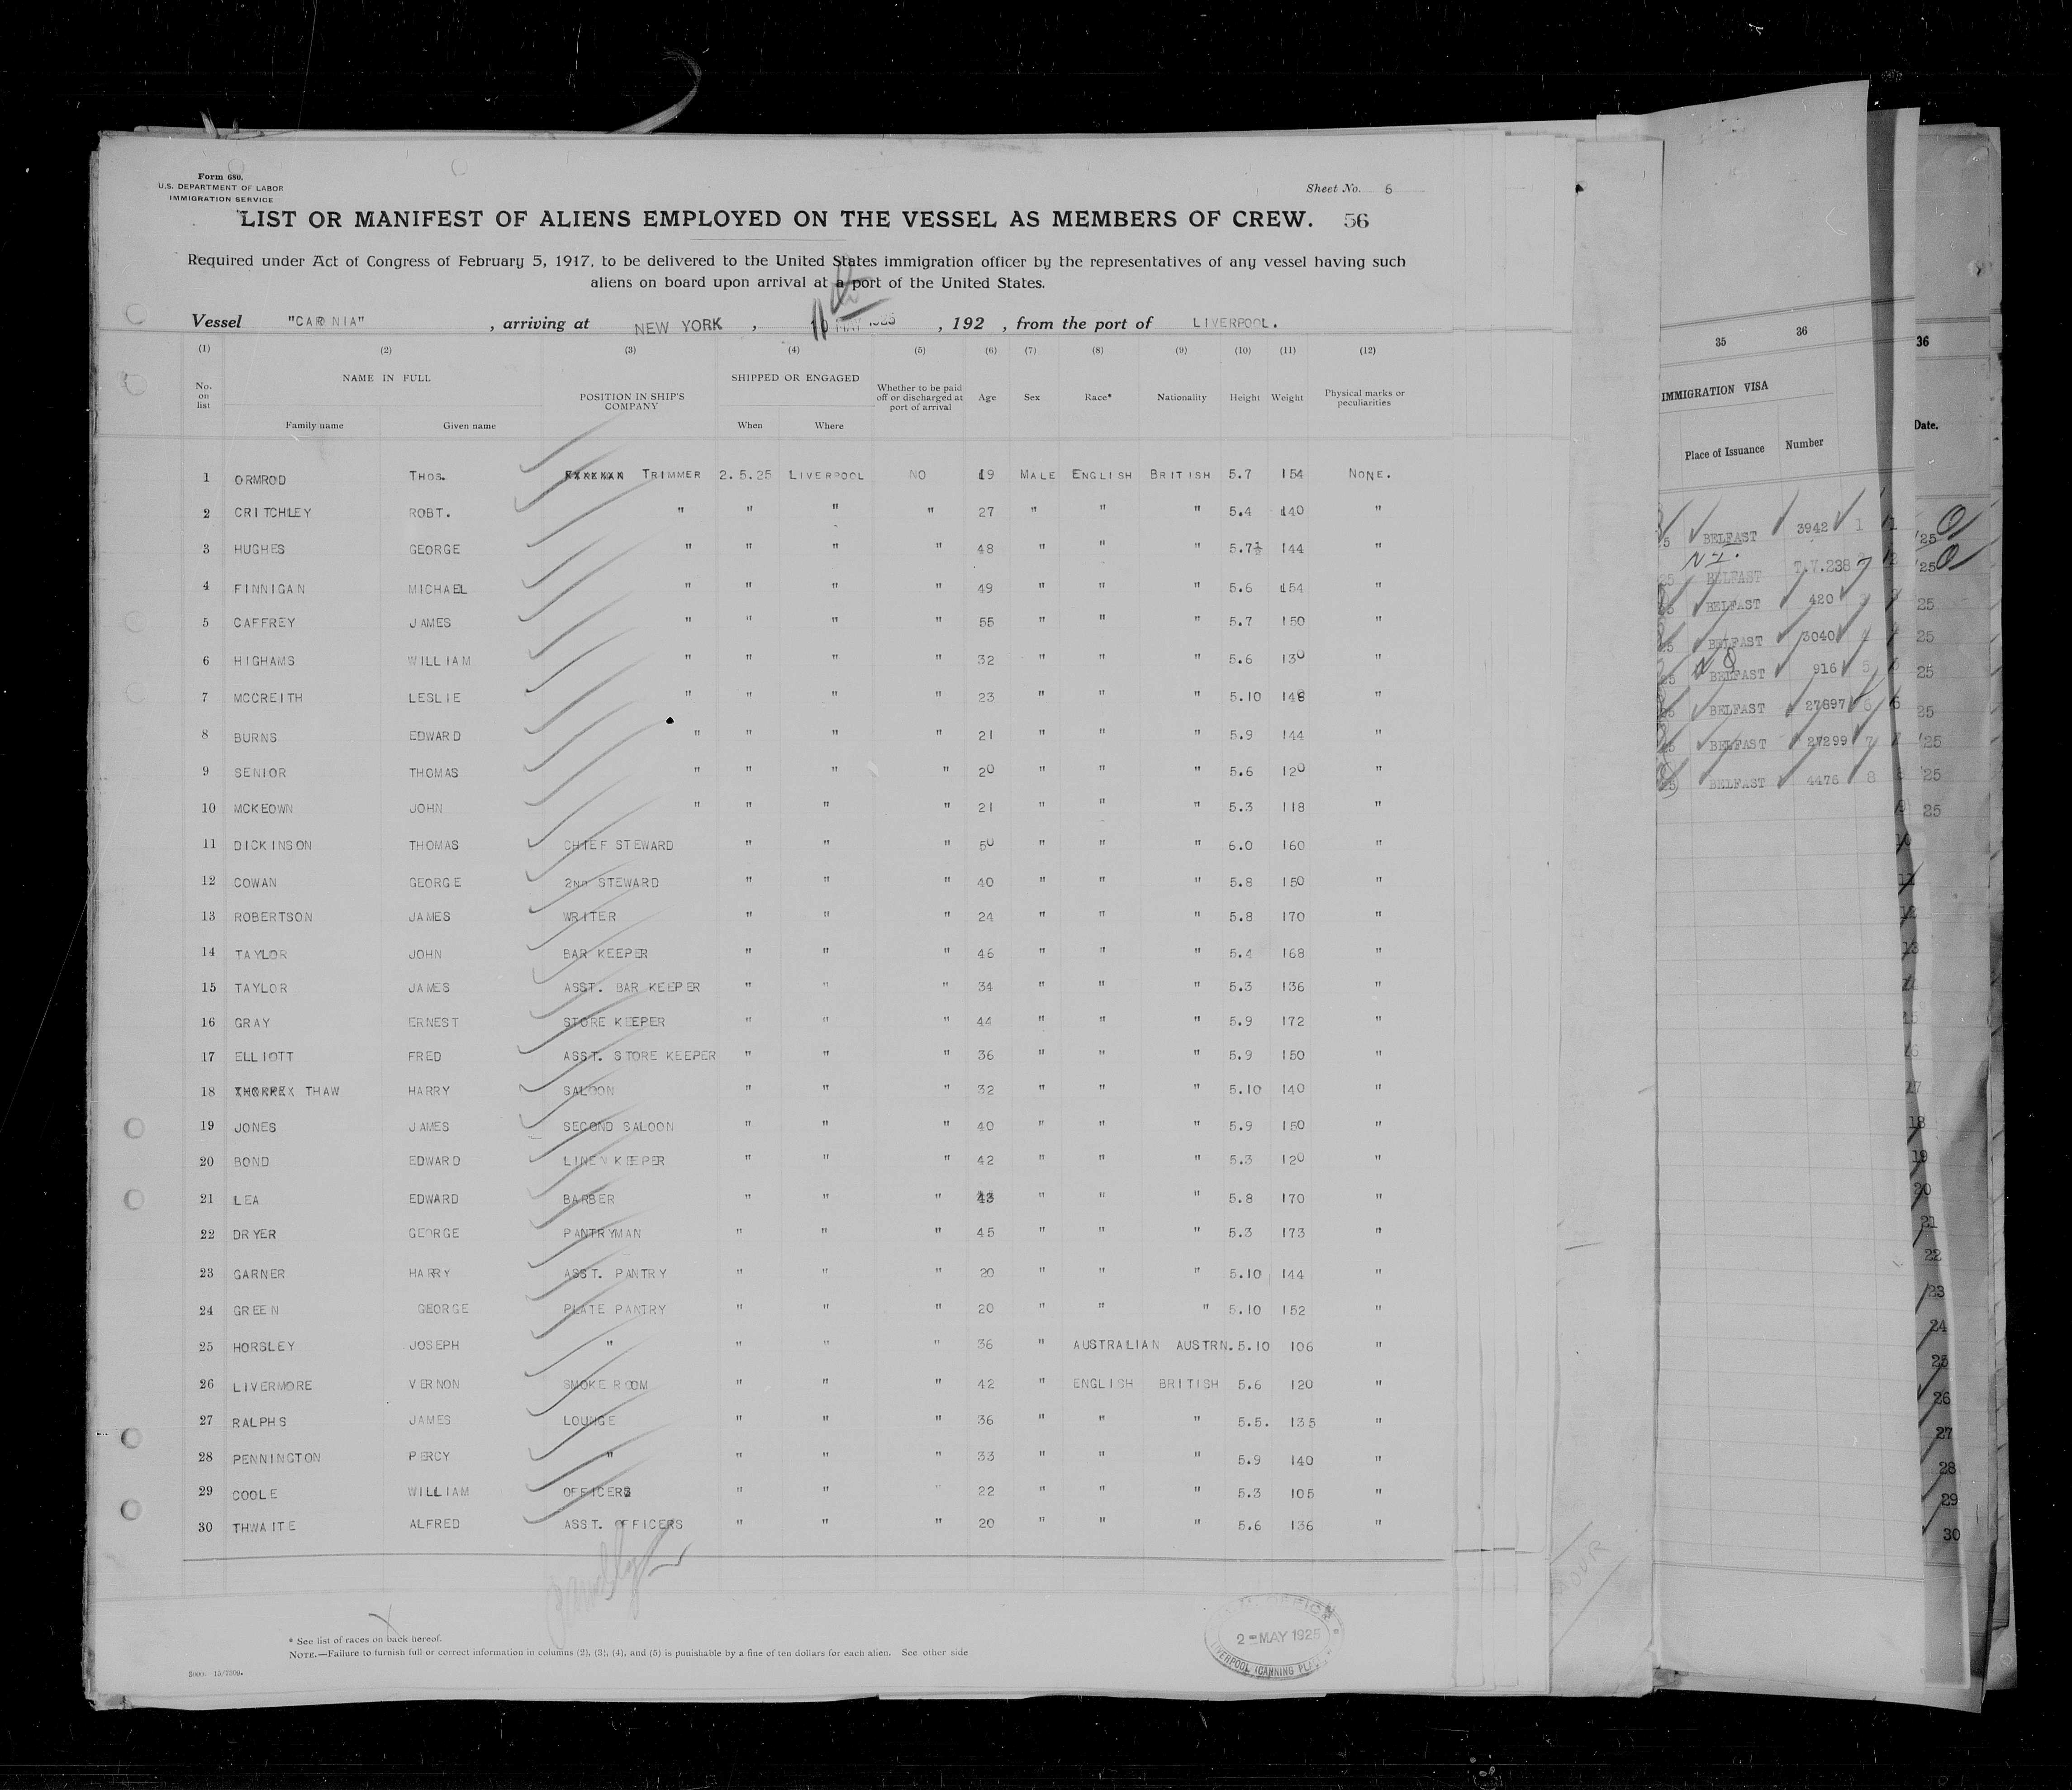 Form 680.
U.S. DEPARTMENT OF LABOR
IMMIGRATION SERVICE
Sheet No. 6
LIST OR MANIFEST OF ALIENS EMPLOYED ON THE VESSEL AS MEMBERS OF CREW. 56
Required under Act of Congress of February 5, 1917, to be delivered to the United States immigration officer by the representatives of any vessel having such
aliens on board upon arrival at a port of the United States.
Vessel "CARONIA" , arriving at NEW YORK , MAY 1925 , 192 , from the port of LIVERPOOL.
(1) (2) (3) (4) (5) (6) (7) (8) (9) (10) (11) (12)
No. on list NAME IN FULL POSITION IN SHIP'S COMPANY SHIPPED OR ENGAGED Whether to be paid off or discharged at port of arrival Age Sex Race* Nationality Height Weight Physical marks or peculiarities
Family name Given name When Where
1 ORMROD THOS. TRIMMER 2.5.25 LIVERPOOL NO 19 MALE ENGLISH BRITISH 5.7 154 NONE.
2 CRITCHLEY ROBT. " " " " 27 " " " 5.4 140 "
3 HUGHES GEORGE " " " " 48 " " " 5.7½ 144 "
4 FINNIGAN MICHAEL " " " " 49 " " " 5.6 154 "
5 CAFFREY JAMES " " " " 55 " " " 5.7 150 "
6 HIGHAMS WILLIAM " " " " 32 " " " 5.6 130 "
7 MCCREITH LESLIE " " " " 23 " " " 5.10 148 "
8 BURNS EDWARD " " " " 21 " " " 5.9 144 "
9 SENIOR THOMAS " " " " 20 " " " 5.6 120 "
10 MCKEOWN JOHN " " " " 21 " " " 5.3 118 "
11 DICKINSON THOMAS CHIEF STEWARD " " " 50 " " " 6.0 160 "
12 COWAN GEORGE 2ND STEWARD " " " 40 " " " 5.8 150 "
13 ROBERTSON JAMES WRITER " " " 24 " " " 5.8 170 "
14 TAYLOR JOHN BAR KEEPER " " " 46 " " " 5.4 168 "
15 TAYLOR JAMES ASST. BAR KEEPER " " " 34 " " " 5.3 136 "
16 GRAY ERNEST STORE KEEPER " " " 44 " " " 5.9 172 "
17 ELLIOTT FRED ASST. STORE KEEPER " " " 36 " " " 5.9 150 "
18 THAW HARRY SALOON " " " 32 " " " 5.10 140 "
19 JONES JAMES SECOND SALOON " " " 40 " " " 5.9 150 "
20 BOND EDWARD LINEN KEEPER " " " 42 " " " 5.3 120 "
21 LEA EDWARD BARBER " " " 43 " " " 5.8 170 "
22 DRYER GEORGE PANTRYMAN " " " 45 " " " 5.3 173 "
23 GARNER HARRY ASST. PANTRY " " " 20 " " " 5.10 144 "
24 GREEN GEORGE PLATE PANTRY " " " 20 " " " 5.10 152 "
25 HORSLEY JOSEPH " " " " 36 " AUSTRALIAN AUSTRN. 5.10 106 "
26 LIVERMORE VERNON SMOKE ROOM " " " 42 " ENGLISH BRITISH 5.6 120 "
27 RALPHS JAMES LOUNGE " " " 36 " " " 5.5. 135 "
28 PENNINGTON PERCY " " " " 33 " " " 5.9 140 "
29 COOLE WILLIAM OFFICERS " " " 22 " " " 5.3 105 "
30 THWAITE ALFRED ASST. OFFICERS " " " 20 " " " 5.6 136 "
* See list of races on back hereof.
NOTE.—Failure to furnish full or correct information in columns (2), (3), (4), and (5) is punishable by a fine of ten dollars for each alien. See other side
2-MAY 1925
LIVERPOOL (CANNING PLACE)
35 36
IMMIGRATION VISA
Place of Issuance Number
BELFAST 3942 1
BELFAST T.V.238
BELFAST 420
BELFAST 3040
BELFAST 916 5
BELFAST 27897 6
BELFAST 27299 7
BELFAST 4476 8
36
Date.
'25
'25
25
25
25
25
'25
'25
25
18
19
20
21
22
23
24
25
26
27
28
29
30